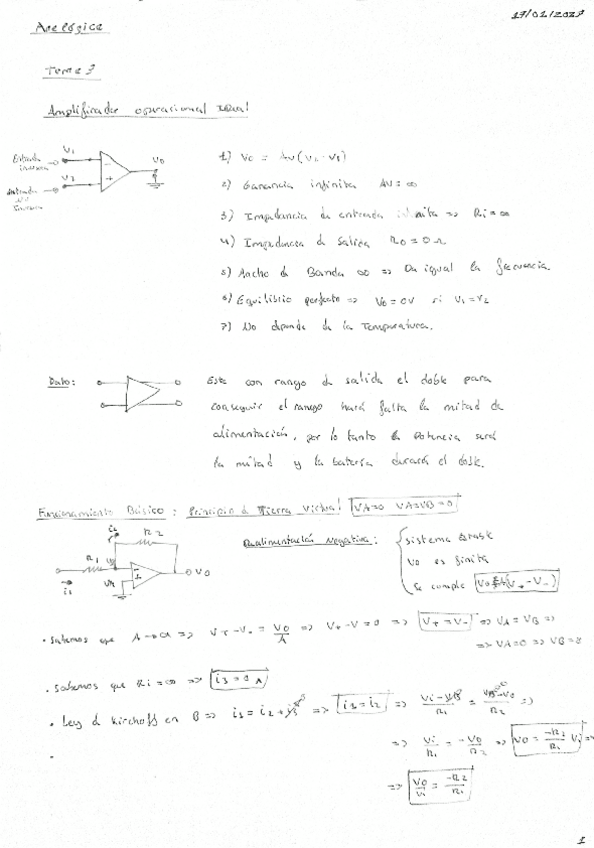 17/01/2023
Analógica
Tema 3
Amplificador operacional Ideal
V1
Entrada inversora
V2
V0
1) V0 = AV(V2 - V1)
2) Ganancia infinita AV = ∞
3) Impedancia de entrada infinita => Ri = ∞
4) Impedancia d salida R0 = 0 Ω
5) Ancho d Banda ∞ => Da igual la frecuencia.
6) Equilibrio perfecto => V0 = 0V si V1 = V2
7) No depende de la Temperatura.
Dato:
Este con rango d salida el doble para
conseguir el rango hará falta la mitad de
alimentación, por lo tanto la Potencia será
la mitad y la batería durará el doble.
Funcionamiento Básico: Principio d Tierra Virtual VA=0 VA=VB=0
i2
R2
R1
i1
V0
Realimentación Negativa:
sistema
V0 es finita
Se cumple
· sabemos que A → ∞ => V+ - V- = V0/A => V+ - V- = 0 => V+ = V- => VA = VB =>
=> VA=0 => VB=0
· Sabemos que Ri = ∞ => i3 = 0 A
· Ley d Kirchoff en B => i1 = i2 + i3 => i1 = i2 => Vi - VB / R1 = VB - V0 / R2 =>
=> Vi/R1 = -V0/R2 => V0 = -R2/R1 Vi =>
=> V0/Vi = -R2/R1
1